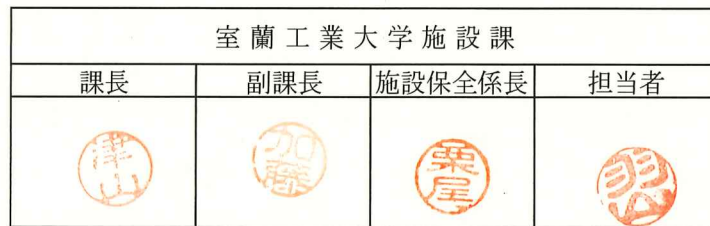 室蘭工業大学施設課
課長 副課長 施設保全係長 担当者
津山 加藤 栗屋